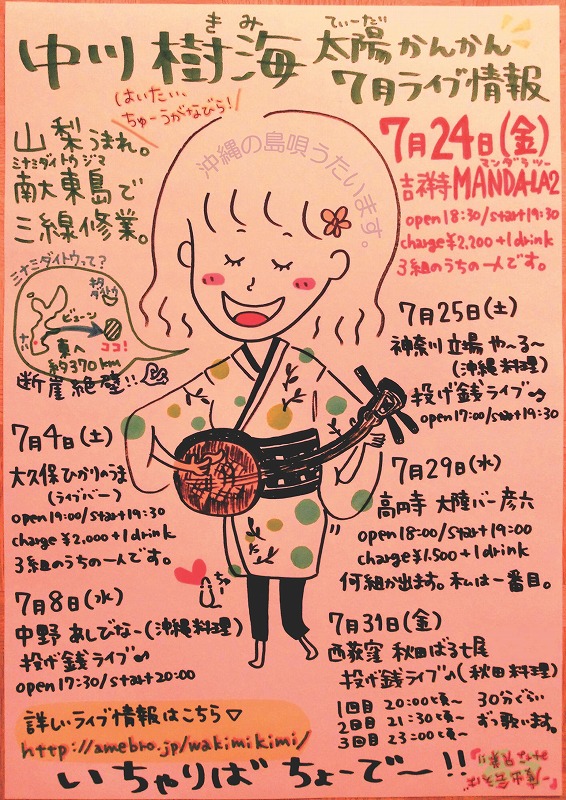 きみ
てぃーだ
中川 樹海 太陽かんかん
7月ライブ情報
はいたい、
ちゅーうがなびら!
沖縄の島唄うたいます。
山梨うまれ。
ミナミダイトウジマ
南大東島で
三線修業。
ミナミダイトウって?
キタ
ダイトウ
ビューン
東へ
ココ!
約370km
断崖絶壁!!
7月4日(土)
大久保 ひかりのうま
(ライブバー)
open19:00/start19:30
charge ¥2,000+1drink
3組のうちの一人です。
7月8日(水)
中野 あしびなー(沖縄料理)
投げ銭ライブ
open17:30/start20:00
7月24日(金)
マンダラツー
吉祥寺MANDA-LA2
open18:30/start19:30
charge¥2,200+1drink
3組のうちの一人です。
7月25日(土)
神奈川 立場 や〜る〜
(沖縄料理)
投げ銭ライブ
open17:00/start19:30
7月29日(水)
高円寺 大陸バー彦六
open18:00/start19:00
charge¥1,500+1drink
何組か出ます。私は一番目。
ちゅ
7月31日(金)
西荻窪 秋田ばる七尾
投げ銭ライブ(秋田料理)
1回目 20:00頃〜 30分ぐらい
2回目 21:30頃〜 ずつ歌います。
3回目 23:00頃〜
詳しいライブ情報はこちら♡
http://amebro.jp/wakimikimi/
いちゃりば ちょーでー!!